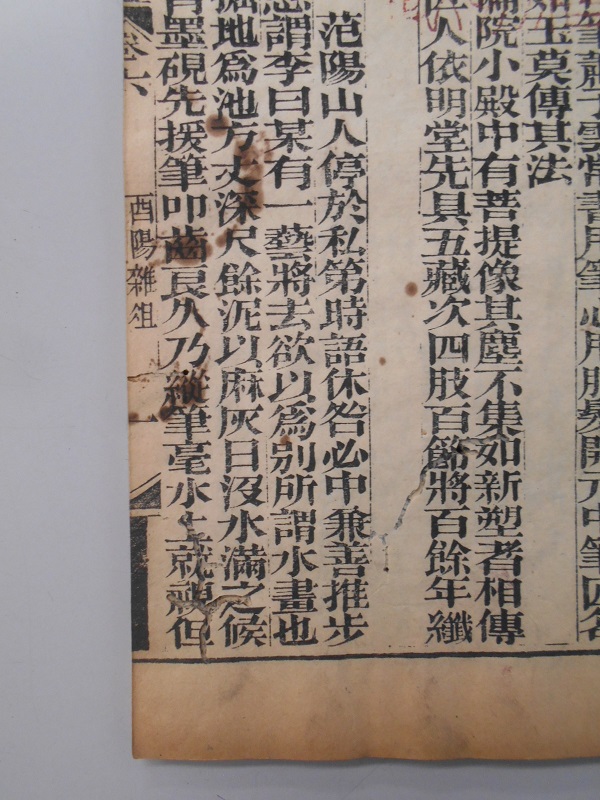 筆蕭子雲常書用筆心用胎髮開元中筆匠名
如玉莫傳其法
院小殿中有菩提像其塵不集如新塑者相傳
人依明堂先具五藏次四肢百節將百餘年纖
范陽山人停於私第時語休咎必中兼善推步
謂李曰某有一藝將去欲以爲別所謂水畫也
掘地爲池方丈深尺餘泥以麻灰日沒水滿之候
墨硯先援筆叩齒良久乃縱筆毫水上就視但
卷六
酉陽雜俎
一